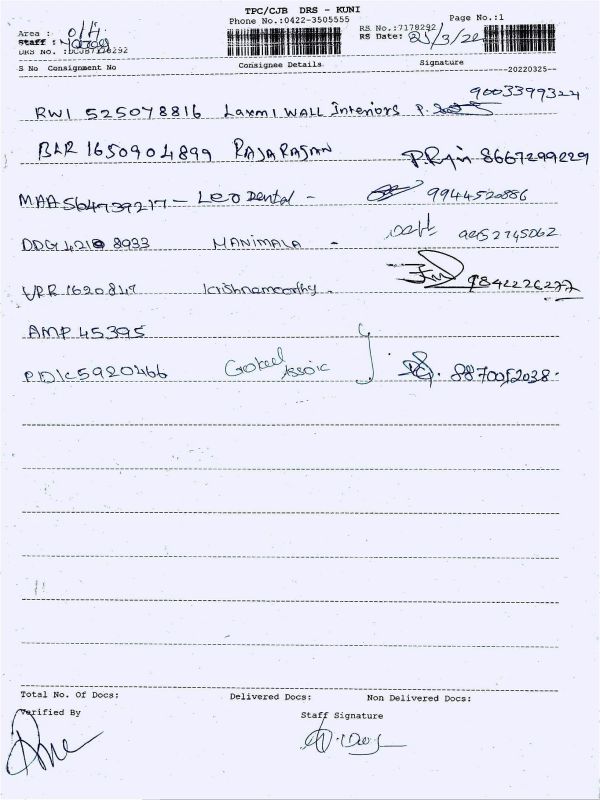 TPC/CJB DRS - KUNI
Phone No.:0422-3505555 Page No.:1
Area : O/H RS No.:7178292
Staff : RS Date: 25/3/22
DRS No. :DCJB7178292
S No Consignment No Consignee Details Signature --20220325--
9003399324
RWI 525078816 Laxmi WALL Interiors P.
BLR 1650904899 RAJARAJAN 8667299229
MAA 564739217 - Leo Dental - 9944520886
DDG 4210 8933 MANIMALA - 9952745062
VPR 1620847 Krishnamoorthy. 9842226277
AMP 45395
PDK5920466 8870052038.
Total No. Of Docs: Delivered Docs: Non Delivered Docs:
Verified By Staff Signature